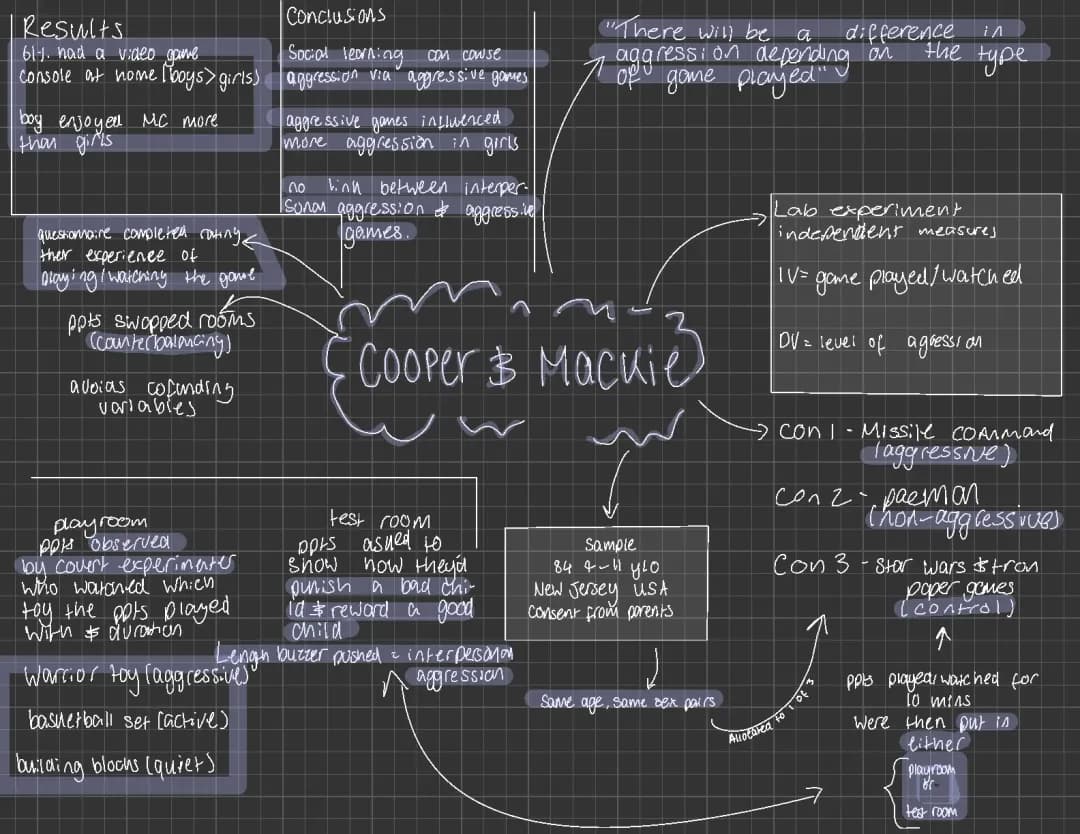 Results
61%. had a video game
console at home (boys>girls)
boy enjoyed MC more
than girls
Conclusions
Social learning can cause
aggression via aggressive games
aggressive games influenced
more aggression in girls
no link between interper-
sonal aggression & aggressive
games.
"There will be a difference in
aggression depending on the type
of game played"
questionnaire completed rating
their experience of
playing/watching the game
ppts swopped rooms
(counterbalancing)
avoids cofunding
variables
Cooper & Mackie
Lab experiment
independent measures
IV= game played/watched
DV= level of agression
Con 1 - Missile command
(aggressive)
Con 2 - pacman
(non-aggressive)
Con 3 - Star wars & tron
paper games
(control)
playroom
ppts observed
by covert experimenter
who watched which
toy the ppts played
with & duration
warrior toy (aggressive)
basketball set (active)
building blocks (quiet)
test room
ppts asked to
show how they'd
punish a bad chi-
ld & reward a good
child
Length buzzer pushed = interpersonal
aggression
Sample
84 4-11 y/o
New Jersey USA
Consent from parents
Same age, same sex pairs
Allocated to 1 of 3
ppts played/watched for
10 mins
were then put in
either
playroom
or
test room